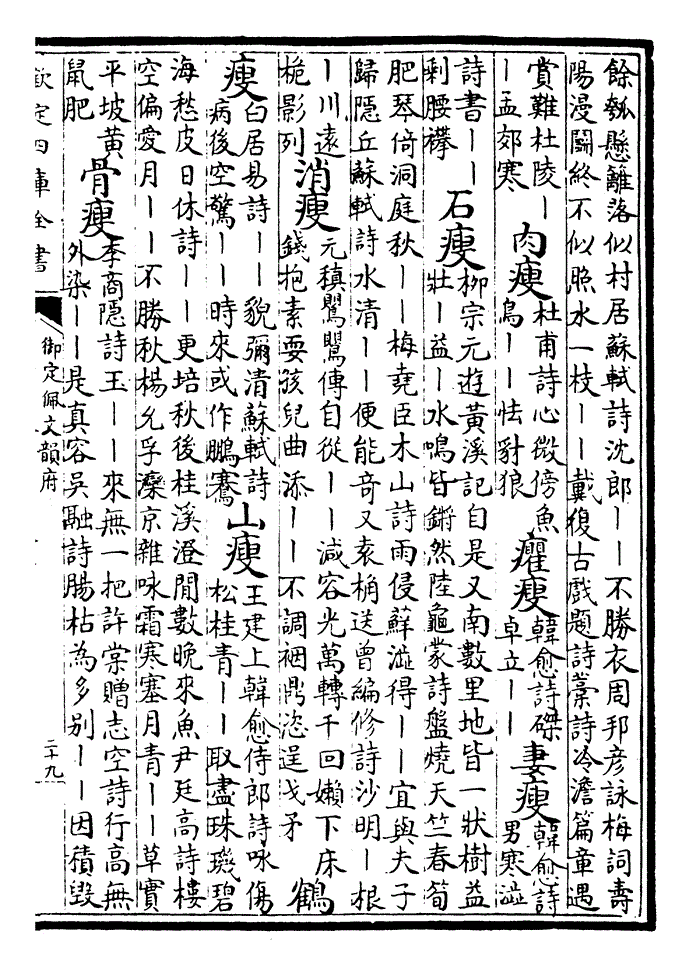 餘瓠懸籬落似村居蘇軾詩沈郎||不勝衣周邦彥詠梅詞壽
陽漫鬭終不似照水一枝||戴復古戲題詩藁詩冷澹篇章遇
賞難杜陵|
|孟郊寒
肉瘦
杜甫詩心微傍魚
鳥||怯豺狼
癯瘦
韓愈詩磔
卓立||
妻瘦
韓愈詩
男寒澁
詩書||
剩腰襻
石瘦
柳宗元遊黃溪記自是又南數里地皆一狀樹益
壯|益|水鳴皆鏘然陸龜蒙詩盤燒天竺春筍
肥琴倚洞庭秋||梅堯臣木山詩雨侵蘚澁得||宜與夫子
歸隱丘蘇軾詩水清||便能竒又袁桷送曾編修詩沙明|根
|川遠
桅影列
消瘦
元稹鶯鶯傳自從||減容光萬轉千回嬾下床
錢抱素耍孩兒曲添||不調裀鼎恣逞戈矛
鶴
瘦
白居易詩||貌彌清蘇軾詩
病後空驚||時來或作鵬騫
山瘦
王建上韓愈侍郎詩咏傷
松桂青||取盡珠璣碧
海愁皮日休詩||更培秋後桂溪澄閒數晚來魚尹廷高詩樓
空偏愛月||不勝秋楊允孚灤京雜咏霜寒塞月青||草實
平坡黃
鼠肥
骨瘦
李商隱詩玉||來無一把許棠贈志空詩行高無
外染||是真容吳融詩腸枯為多别||因積毀
欽定四庫全書
御定佩文韻府
二十九